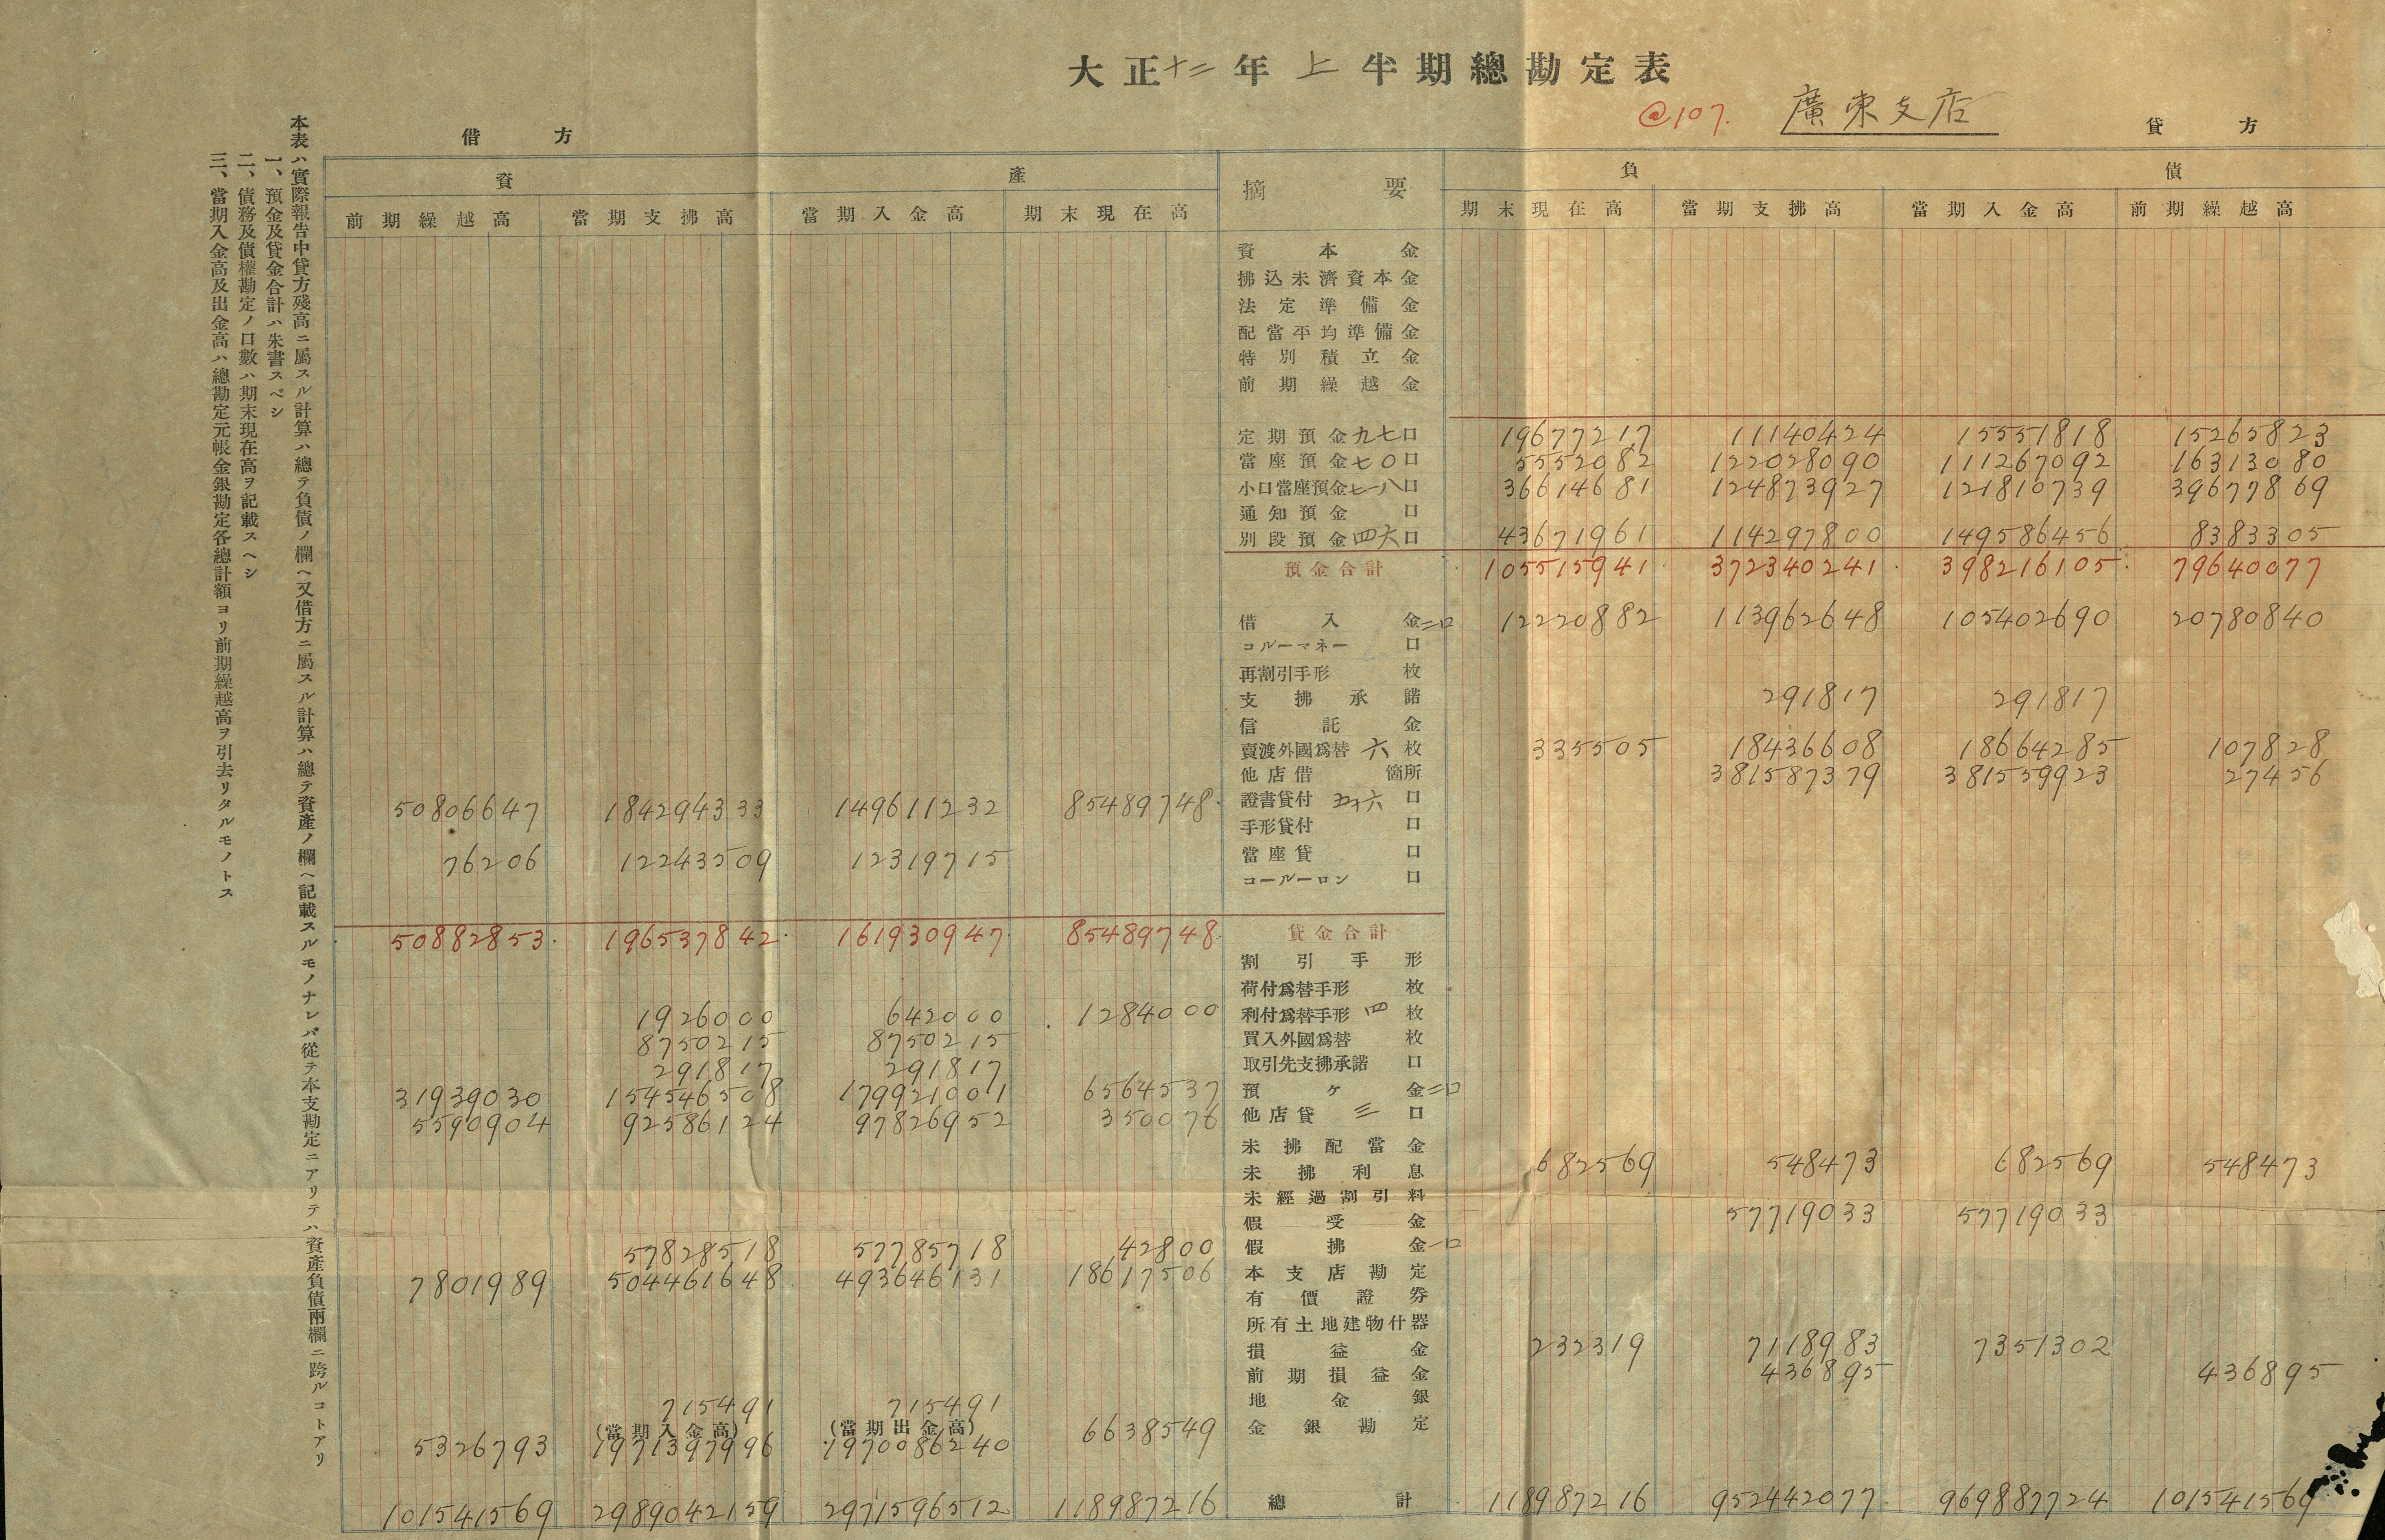 大正十二年上半期總勘定表
@107. 廣東支店
借方 貸方
資產 摘要 負債
前期繰越高 當期支拂高 當期入金高 期末現在高 期末現在高 當期支拂高 當期入金高 前期繰越高
資本金
拂込未濟資本金
法定準備金
配當平均準備金
特別積立金
前期繰越金
定期預金九七口 19677217 11140424 15551818 15265823
當座預金七〇口 5552082 122028090 111267092 16313080
小口當座預金七一八口 36614681 124873927 121810739 39677869
通知預金 口
別段預金四六口 43671961 114297800 149586456 8383305
預金合計 105515941 372340241 398216105 79640077
借入金二口 12220882 113962648 105402690 20780840
コルーマネー 口
再割引手形 枚
支拂承諾 291817 291817
信託金
賣渡外國爲替 六枚 335505 18436608 18664285 107828
他店借 箇所 381587379 381559923 27456
50806647 184294333 149611232 85489748 證書貸付 五十六口
手形貸付 口
76206 12243509 12319715 當座貸 口
コールーロン 口
50882853 196537842 161930947 85489748 貸金合計
割引手形
荷付爲替手形 枚
1926000 642000 1284000 利付爲替手形 四枚
8750215 8750215 買入外國爲替 枚
291817 291817 取引先支拂承諾 口
31939030 154546508 179921001 6564537 預ケ金二口
5590904 92586124 97826952 350076 他店貸 三口
未拂配當金
未拂利息 682569 548473 682569 548473
未經過割引料
假受金 57719033 57719033
57828518 57785718 42800 假拂金一口
7801989 504461648 493646131 18617506 本支店勘定
有價證券
所有土地建物什器
損益金 232319 7118983 7351302
前期損益金 436895 436895
715491 715491 地金銀
(當期入金高) (當期出金高)
5326793 1971397996 1970086240 6638549 金銀勘定
101541569 2989042159 2971596512 118987216 總計 118987216 952442077 969887724 101541569
本表ハ實際報告中貸方殘高ニ屬スル計算ハ總テ負債ノ欄ヘ又借方ニ屬スル計算ハ總テ資產ノ欄ヘ記載スルモノナレバ從テ本支勘定ニアリテハ資產負債兩欄ニ跨ルコトアリ
一、預金及貸金合計ハ朱書スベシ
二、債務及債權勘定ノ口數ハ期末現在高ヲ記載スヘシ
三、當期入金高及出金高ハ總勘定元帳金銀勘定各總計額ヨリ前期繰越高ヲ引去リタルモノトス